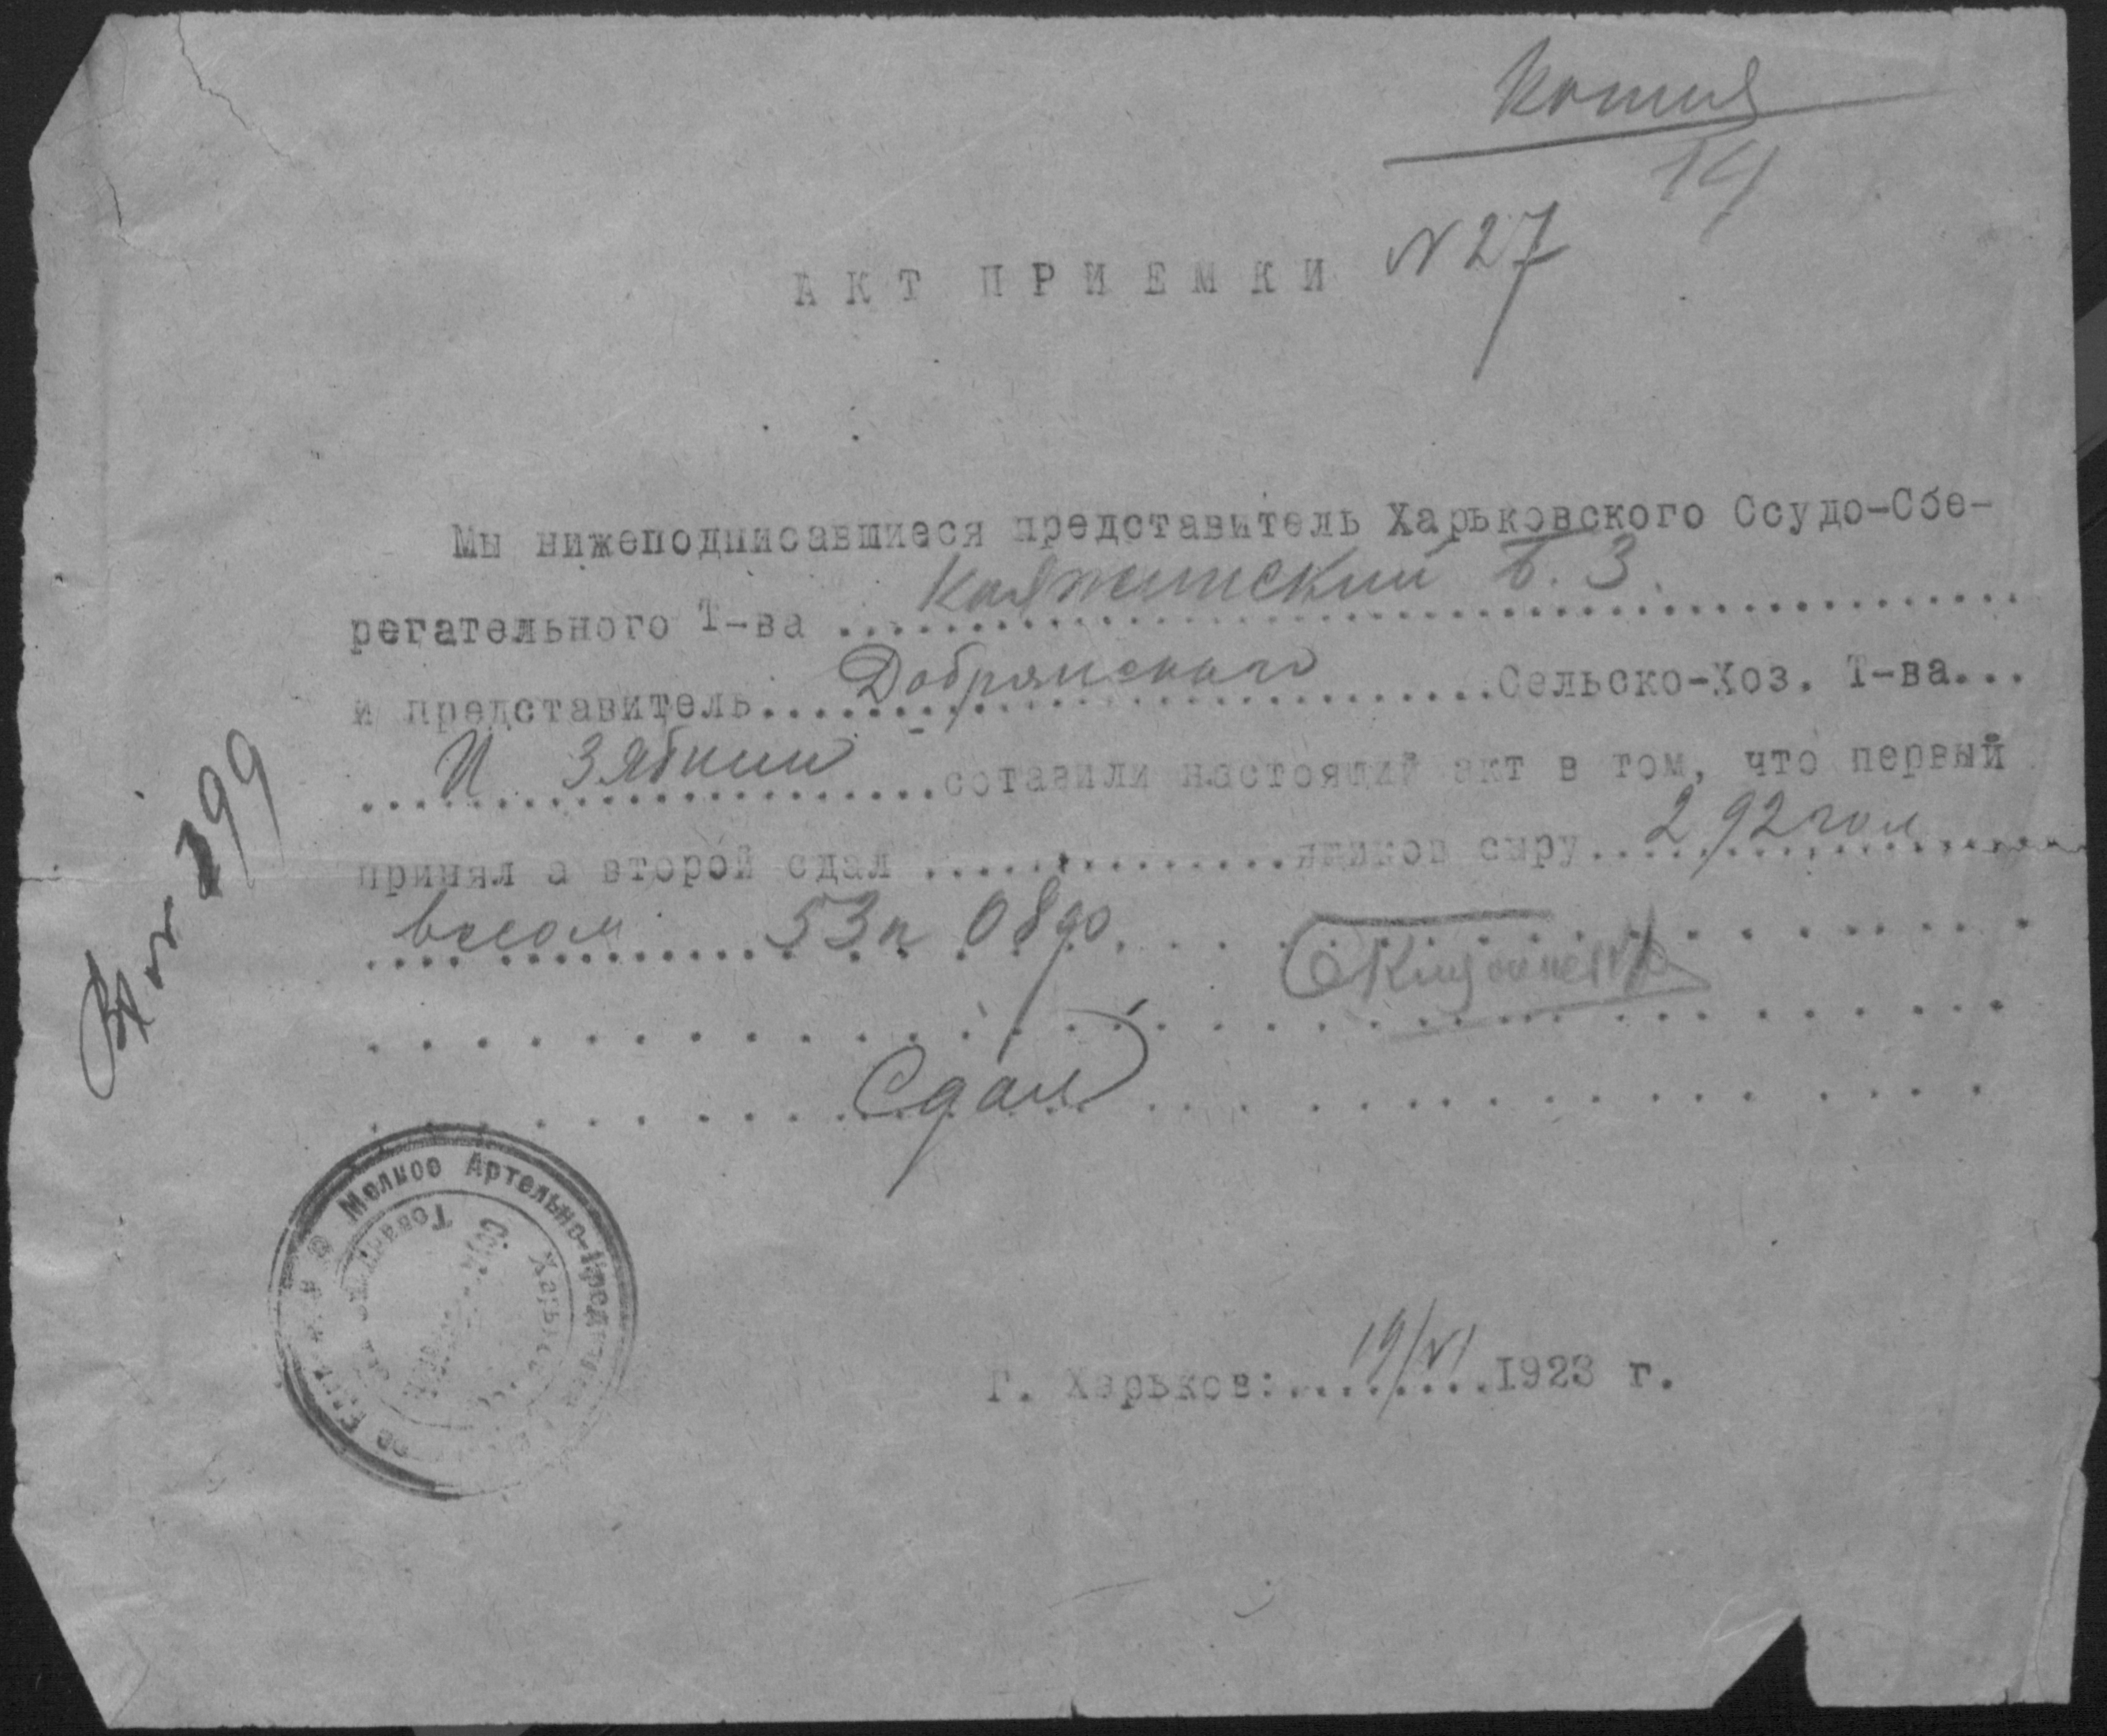 Копия
14
АКТ ПРИЕМКИ N 27
Мы нижеподписавшиеся представитель Харьковского Ссудо-Сбе-
регательного Т-ва ........ Б. З.
и представитель........Добрянского........Сельско-Хоз. Т-ва...
....И Зябкин........сотавили настоящий акт в том, что первый
принял а второй сдал ..............ящиков сыру..292 гол......
весом..........53 п 08 ф
Сдал
199
Мелкое Артельно-
Товар
Харьк
Г. Харьков:..19/VI..1923 г.